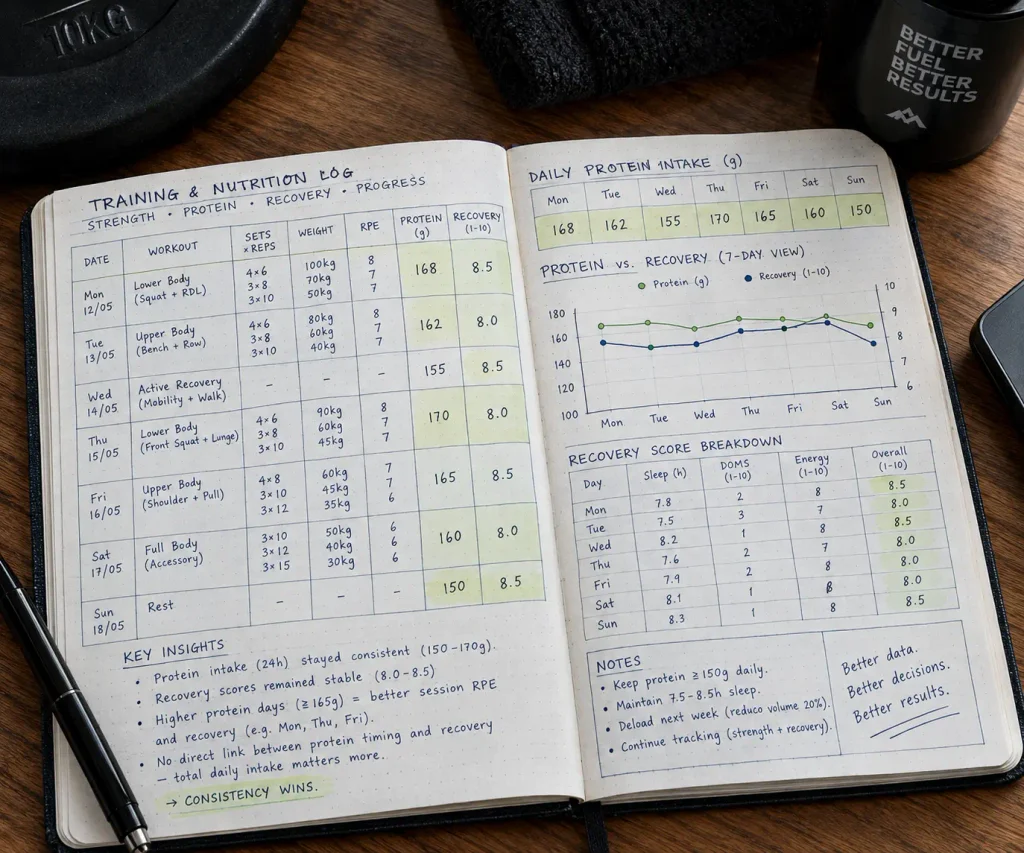 10KG
BETTER
FUEL
BETTER
RESULTS
TRAINING & NUTRITION LOG
STRENGTH · PROTEIN · RECOVERY · PROGRESS
DATE WORKOUT SETS × REPS WEIGHT RPE PROTEIN (g) RECOVERY (1-10)
Mon 12/05 Lower Body (Squat + RDL) 4×6 100kg 8 168 8.5
3×8 70kg 7
3×10 50kg 7
Tue 13/05 Upper Body (Bench + Row) 4×6 80kg 8 162 8.0
3×8 60kg 7
3×10 40kg 7
Wed 14/05 Active Recovery (Mobility + Walk) – – – 155 8.5
Thu 15/05 Lower Body (Front Squat + Lunge) 4×6 90kg 8 170 8.0
3×8 60kg 7
3×10 45kg 7
Fri 16/05 Upper Body (Shoulder + Pull) 4×8 60kg 7 165 8.5
3×10 45kg 7
3×12 35kg 6
Sat 17/05 Full Body (Accessory) 3×10 50kg 6 160 8.0
3×12 40kg 6
3×15 30kg 6
Sun 18/05 Rest – – – 150 8.5
KEY INSIGHTS
• Protein intake (24h) stayed consistent (150–170g).
• Recovery scores remained stable (8.0–8.5)
• Higher protein days (≥165g) = better session RPE
and recovery (e.g. Mon, Thu, Fri).
• No direct link between protein timing and recovery
— total daily intake matters more.
→ CONSISTENCY WINS.
DAILY PROTEIN INTAKE (g)
Mon Tue Wed Thu Fri Sat Sun
168 162 155 170 165 160 150
PROTEIN vs. RECOVERY (7-DAY VIEW)
Protein (g) Recovery (1-10)
180 10
160 9
140 8
120 7
100 6
Mon Tue Wed Thu Fri Sat Sun
RECOVERY SCORE BREAKDOWN
Day Sleep (h) DOMS (1-10) Energy (1-10) Overall (1-10)
Mon 7.8 2 8 8.5
Tue 7.5 3 7 8.0
Wed 8.2 1 8 8.5
Thu 7.6 2 7 8.0
Fri 7.9 2 8 8.0
Sat 8.1 1 8 8.0
Sun 8.3 1 8 8.5
NOTES
• Keep protein ≥150g daily.
• Maintain 7.5-8.5h sleep.
• Deload next week (reduco volume 20%).
• Continue tracking (strength + recovery).
Better data.
Better decisions.
Better results.